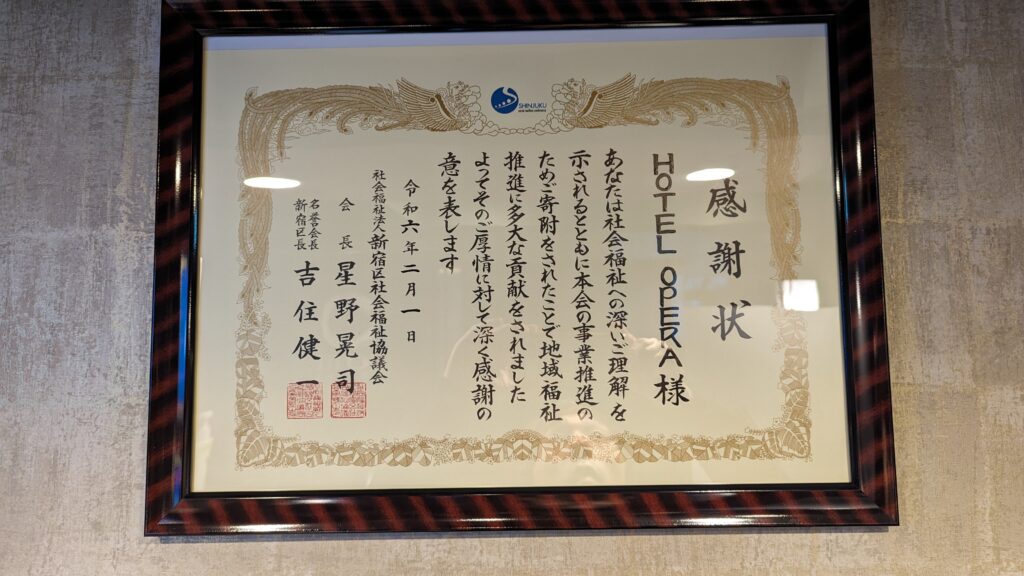 SHINJUKU
感謝状
HOTEL OPERA 様
あなたは社会福祉への深いご理解を
示されるとともに本会の事業推進の
ためご寄附をされたことで地域福祉
推進に多大な貢献をされました
よってそのご厚情に対して深く感謝の
意を表します
令和六年二月一日
社会福祉法人新宿区社会福祉協議会
会長 星野晃司
名誉会長
新宿区長 吉住健一